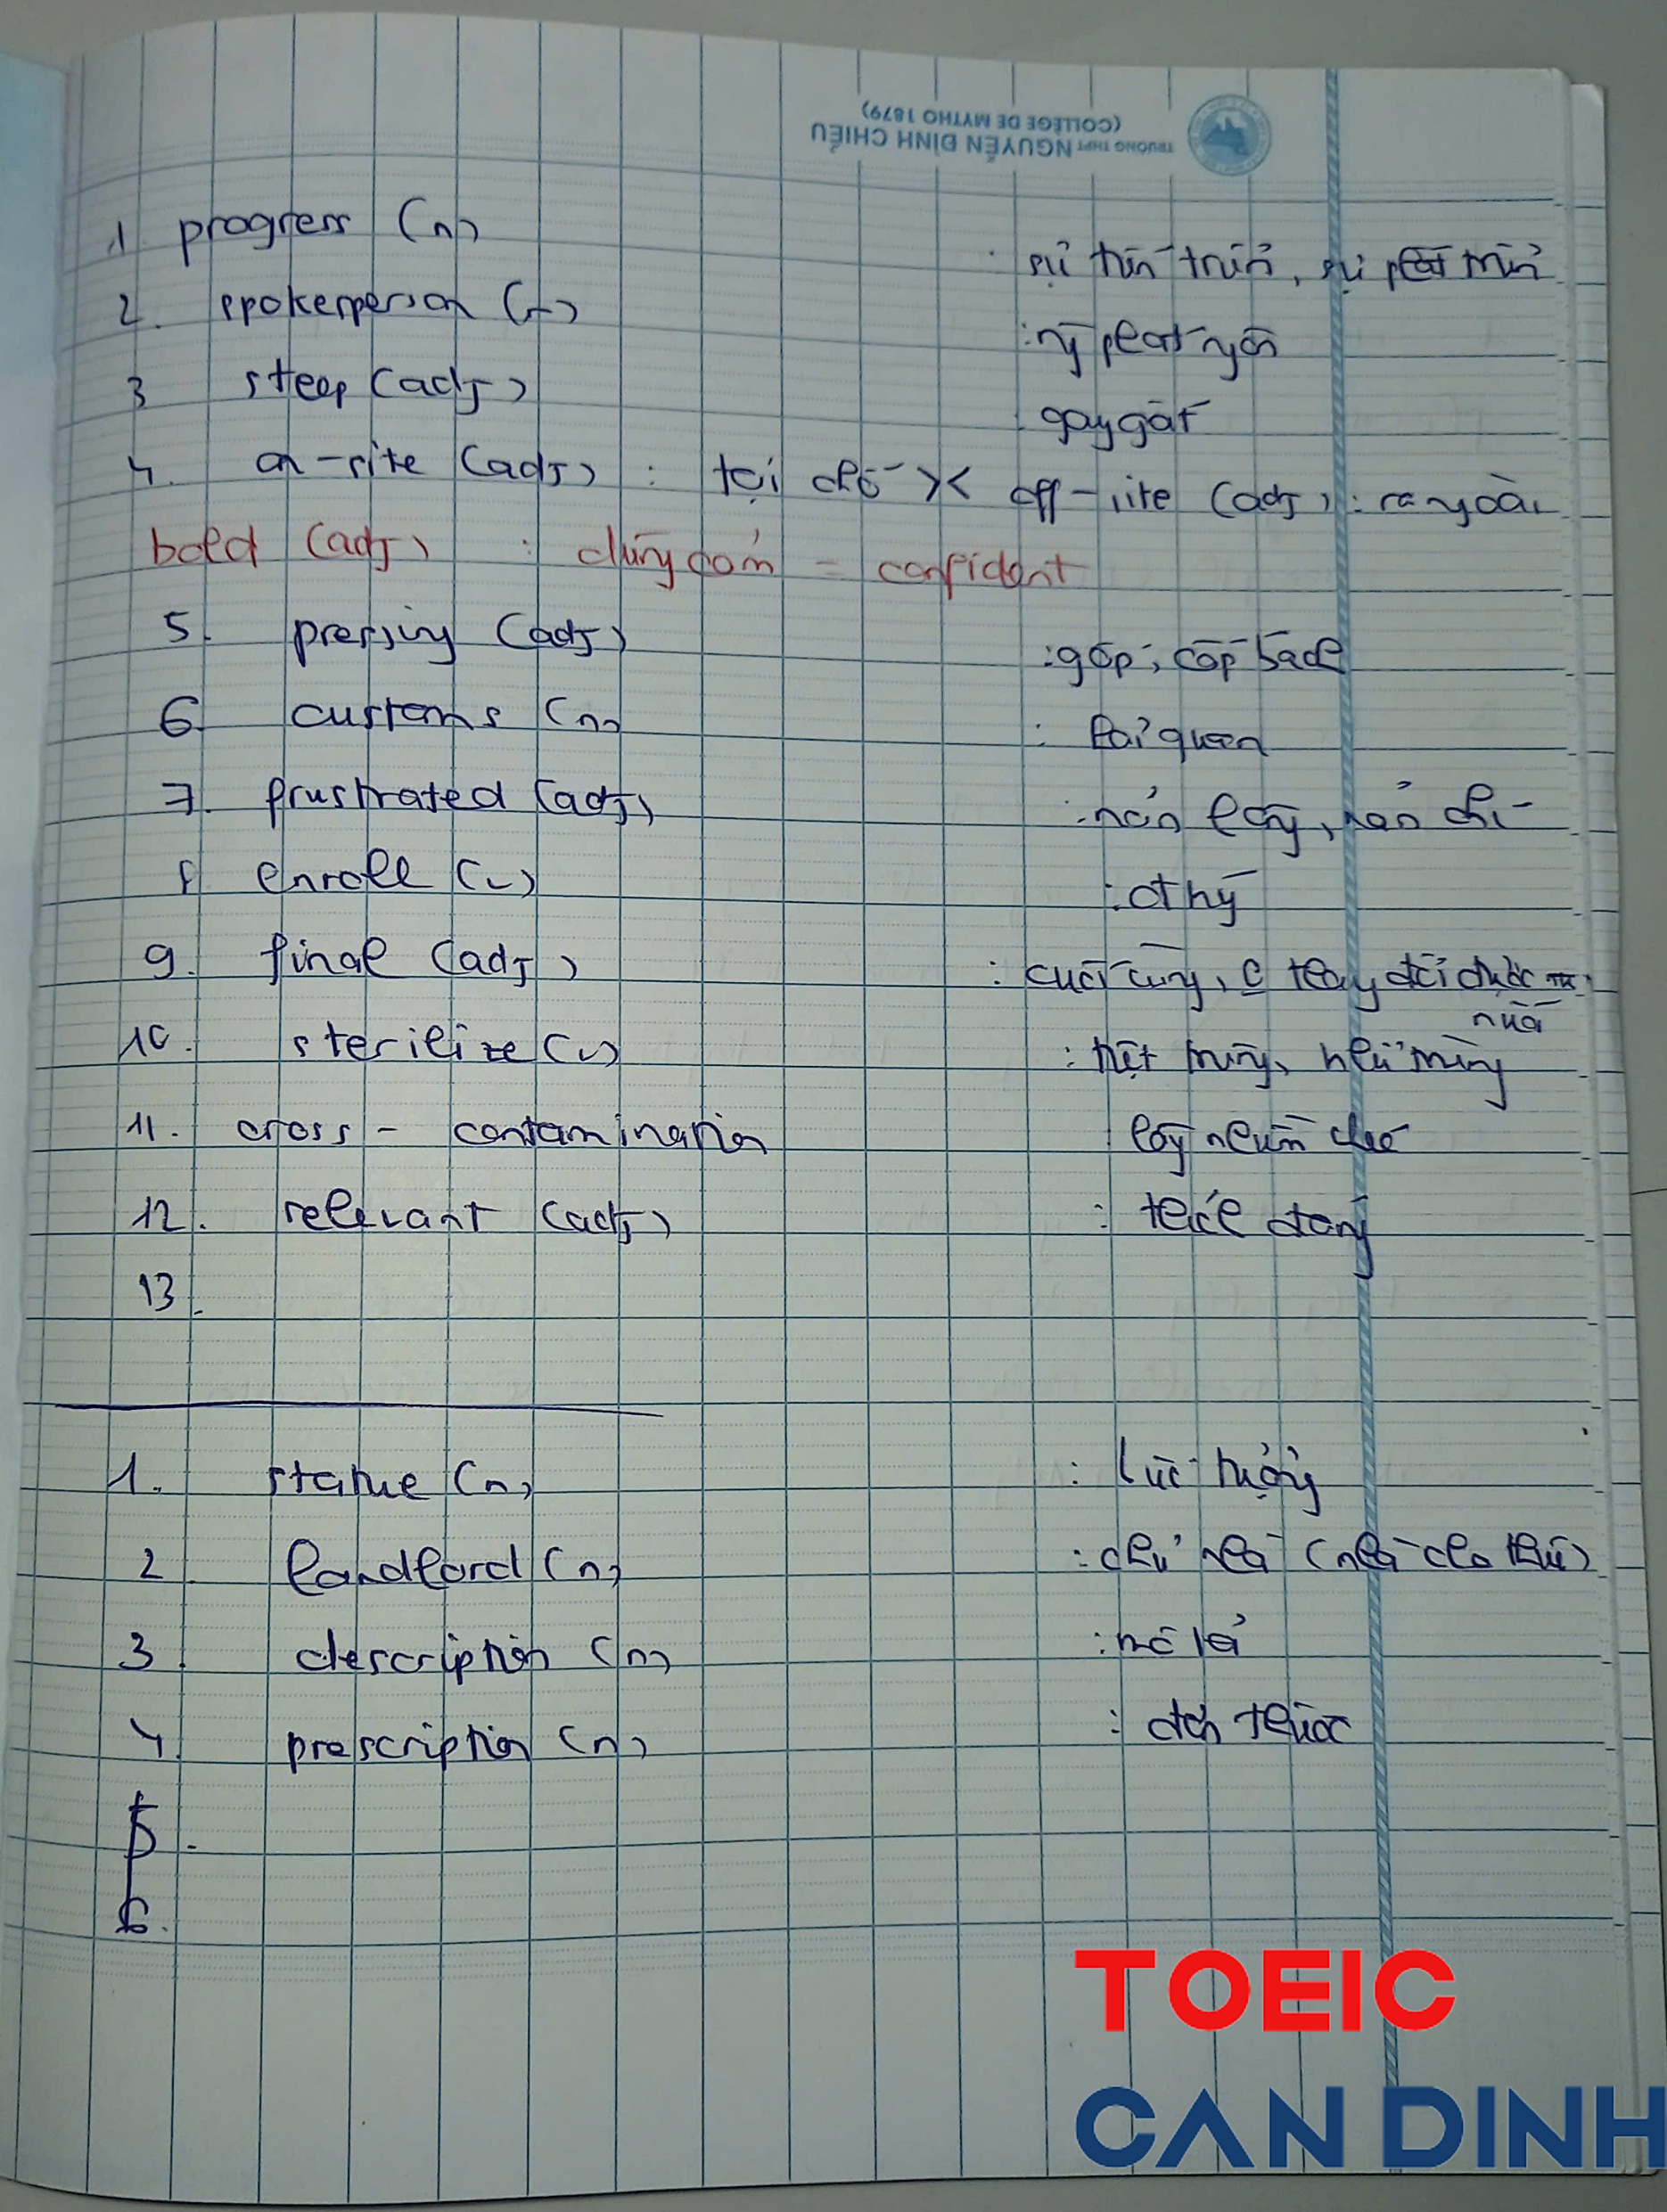 TRƯỜNG THPT NGUYỄN ĐÌNH CHIỂU
(COLLÈGE DE MYTHO 1879)
1. progress (n) : sự tiến triển, sự phát triển
2. spokesperson (n) : ng phát ngôn
3 steep (adj) : gay gắt
4. on-site (adj) : tại chỗ >< off-site (adj) : ra ngoài
bold (adj) : dũng cảm = confident
5. pressing (adj) : gấp, cấp bách
6 customs (n) : hải quan
7. frustrated (adj) : nản lòng, nản chí
8 enroll (v) : đ ký
9. final (adj) : cuối cùng, thay đổi được
nữa
10. sterilize (v) : tiệt trùng, khử trùng
11. cross - contamination : lây nhiễm chéo
12. relevant (adj) : thích đáng
13.
1. statue (n) : bức tượng
2 landlord (n) : chủ nhà (nhà cho thuê)
3. description (n) : mô tả
4. prescription (n) : đơn thuốc
5.
6.
TOEIC
CAN DINH